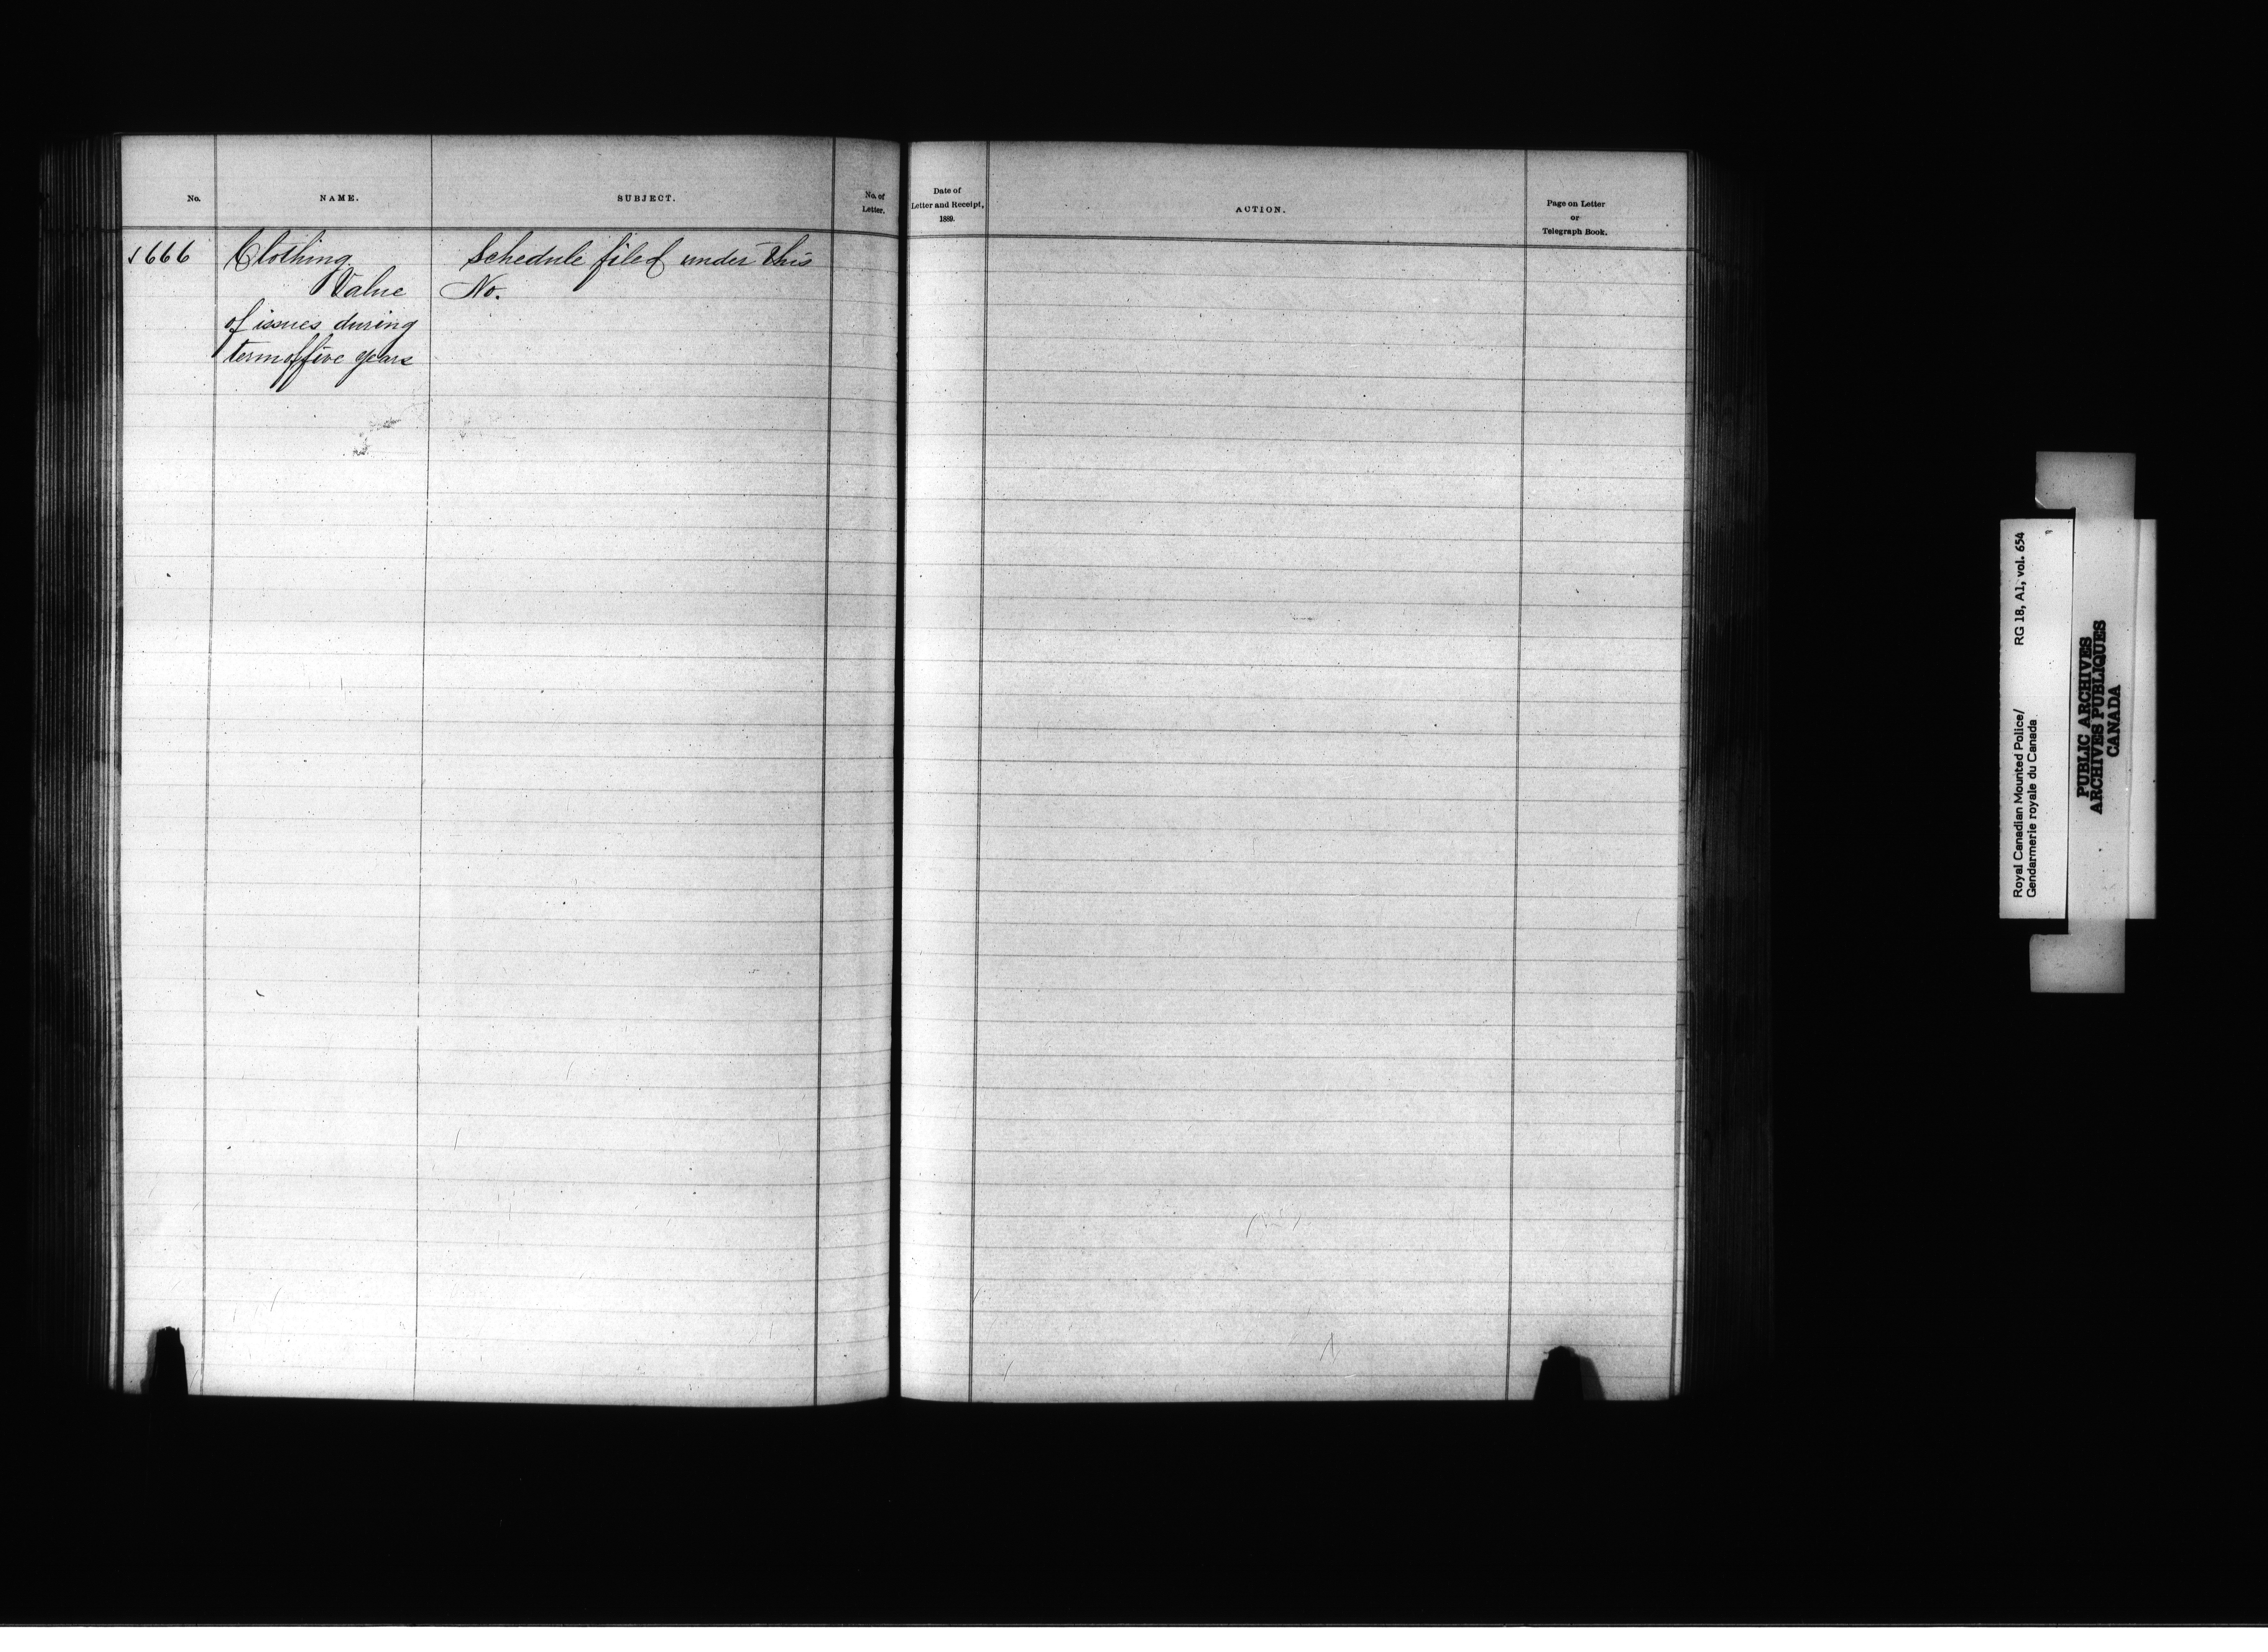 No.
NAME.
SUBJECT.
No. of
Letter.
Date of
Letter and Receipt,
1889.
ACTION.
Page on Letter
or
Telegraph Book.
1666 Clothing Schedule filed under this
Value No.
of issues during
term of five years
Royal Canadian Mounted Police/ RG 18, A1, vol. 654
Gendarmerie royale du Canada
PUBLIC ARCHIVES
ARCHIVES PUBLIQUES
CANADA